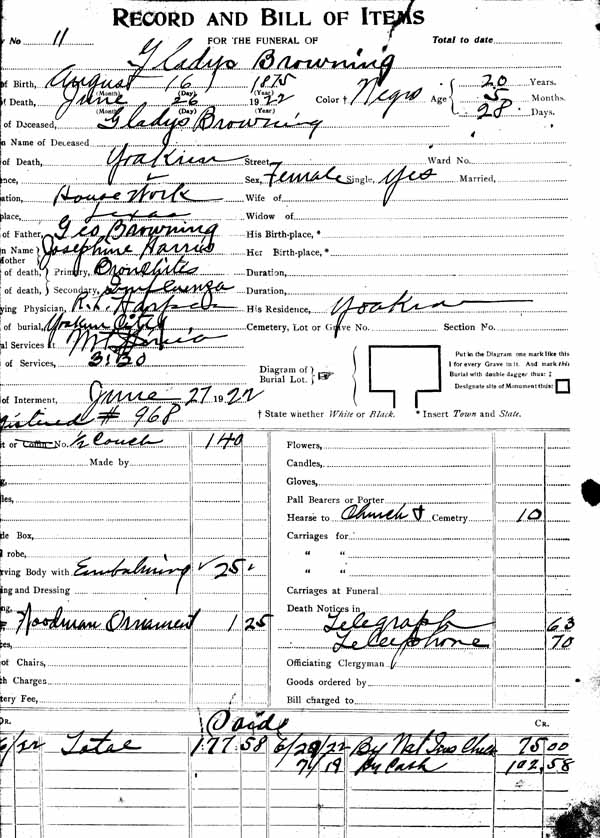 RECORD AND BILL OF ITEMS
y No 11 FOR THE FUNERAL OF Total to date
Gladys Browning
of Birth, August 16 1875
(Month) (Day) (Year)
of Death, June 26 1922 Color † Negro Age 20 Years.
5 Months.
28 Days.
(Month) (Day) (Year)
of Deceased, Gladys Browning
n Name of Deceased
of Death, Yoakum Street, Ward No.
nce, Sex, Female Single, yes Married,
ation, House Work Wife of
place, Texas Widow of
of Father, Geo Browning His Birth-place, *
n Name Mother Josephine Harris Her Birth-place, *
of death, Primary, Bronchites Duration,
of death, Secondary, Influenza Duration,
ying Physician, R.L. His Residence, Yoakum
of burial, Yoakum City Cemetery, Lot or Grave No. Section No.
al Services at Mt
of Services, 3:30
Diagram of Burial Lot.
Put in the Diagram one mark like this
1 for every Grave in it. And mark this
Burial with double dagger thus: ‡
Designate site of Monument thus:
of Interment, June 27 1922
gistered # 968 † State whether White or Black. * Insert Town and State.
t or Coffin No. 1/2 Couch 140 Flowers,
Made by Candles,
Gloves,
les, Pall Bearers or Porter
Hearse to Church + Cemetry 10
de Box, Carriages for
l robe, " "
rving Body with Embalming 25 " "
ing and Dressing Carriages at Funeral
ng, Death Notices in
Woodman Ornament 1 25 Telegraph 63
ces, Telephone 70
of Chairs, Officiating Clergyman
h Charges Goods ordered by
tery Fee, Bill charged to
DR. Paide CR.
6/22 Total 177.58 6/29/22 By Nat Ins Check 75 00
7/19 By Cash 102.58